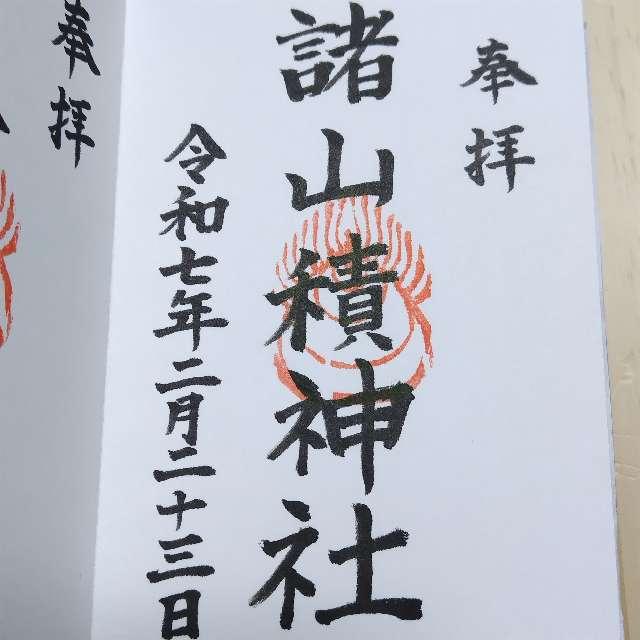 奉拝
諸山積神社
令和七年二月二十三日
奉拝